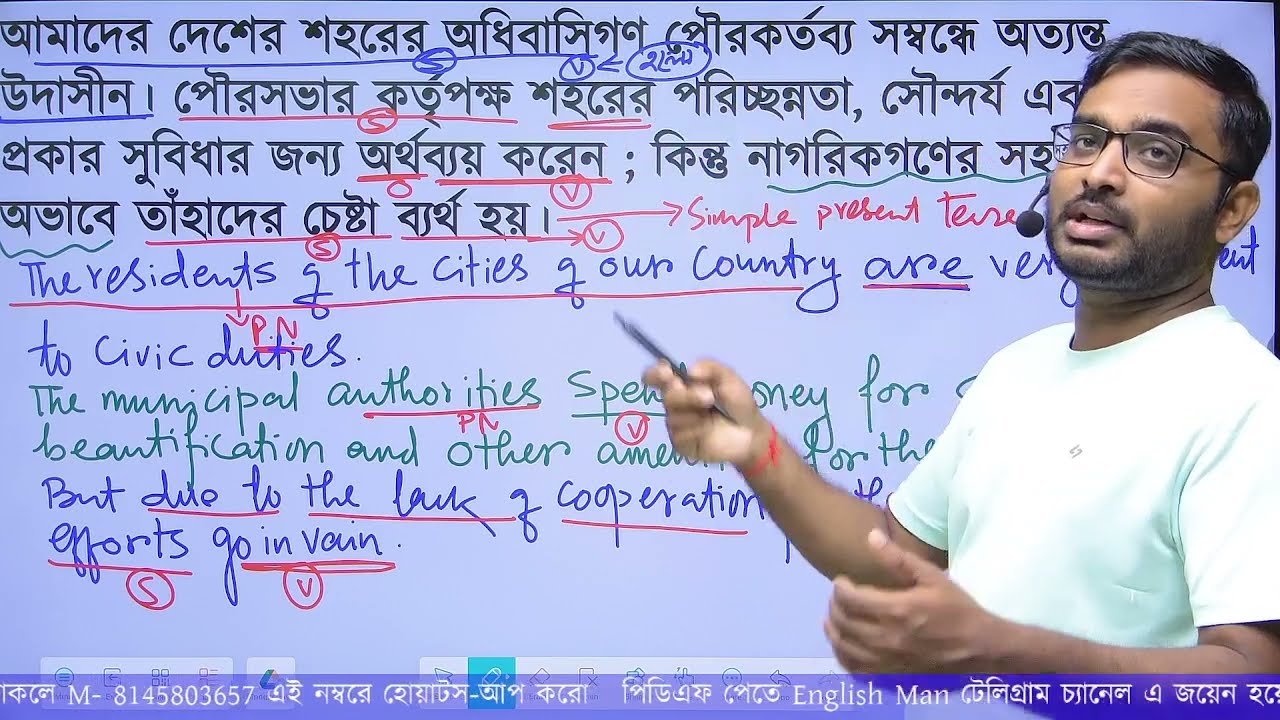 আমাদের দেশের শহরের অধিবাসিগণ পৌরকর্তব্য সম্বন্ধে অত্যন্ত
S V হলো
উদাসীন। পৌরসভার কর্তৃপক্ষ শহরের পরিচ্ছন্নতা, সৌন্দর্য
S
প্রকার সুবিধার জন্য অর্থব্যয় করেন ; কিন্তু নাগরিকগণের
O V
অভাবে তাঁহাদের চেষ্টা ব্যর্থ হয়। Simple present Tense
S V
The residents of the cities of our country are very
P.N
to civic duties.
The municipal authorities spend money for
PN V
beautification and other for the
But due to the lack of cooperation
efforts go in vain.
S V
M- 8145803657 এই নম্বরে হোয়াটস-আপ করো পিডিএফ পেতে English Man টেলিগ্রাম চ্যানেল এ জয়েন